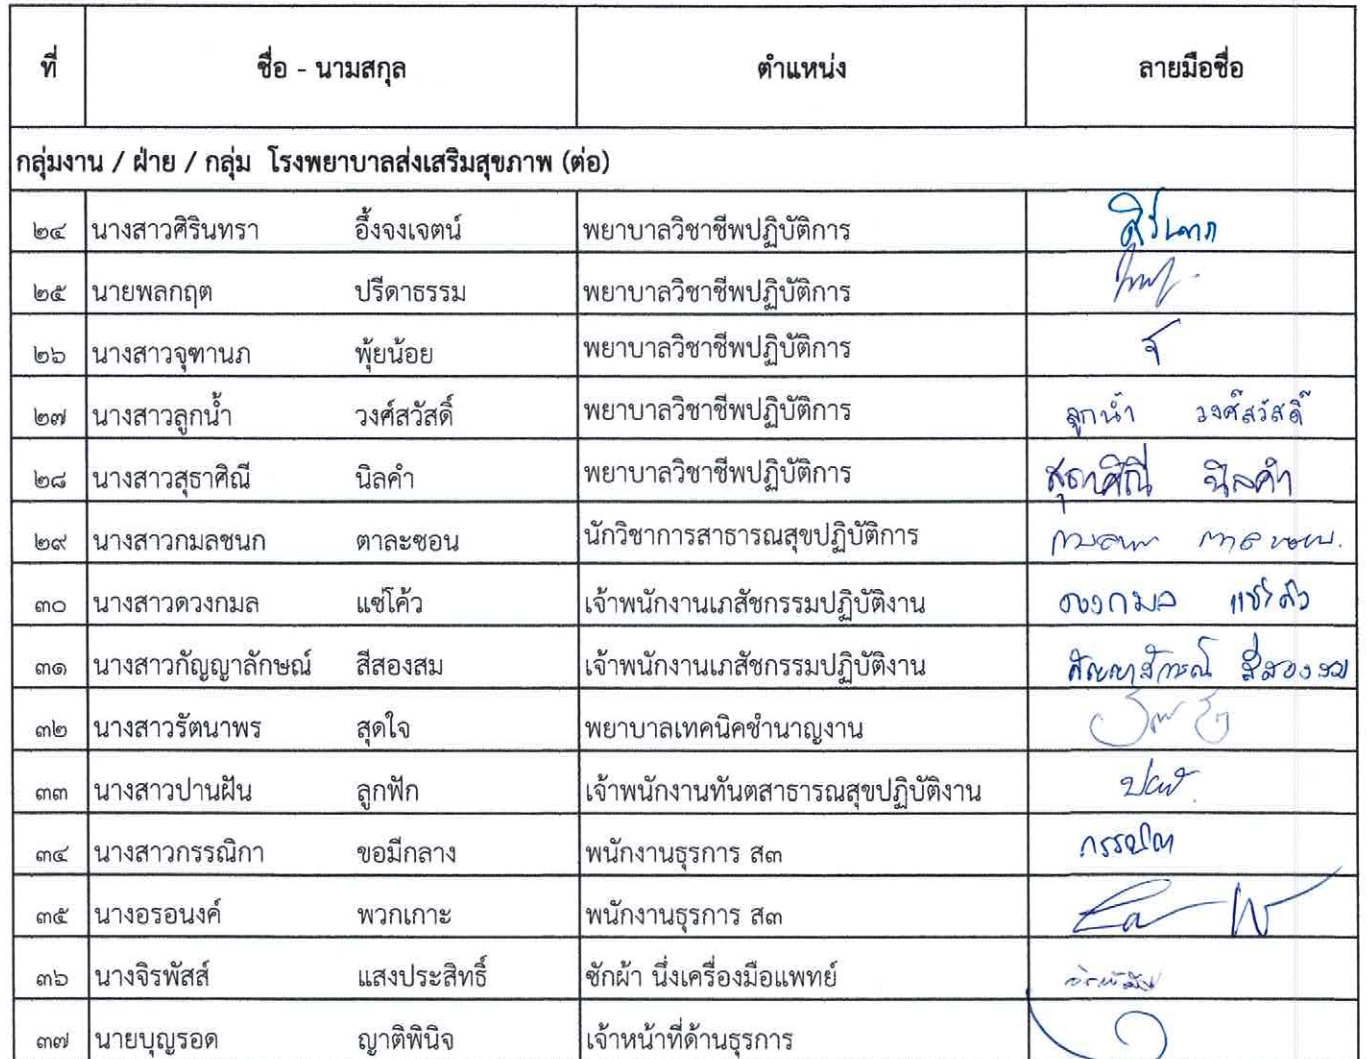 ที่ ชื่อ - นามสกุล ตำแหน่ง ลายมือชื่อ
กลุ่มงาน / ฝ่าย / กลุ่ม โรงพยาบาลส่งเสริมสุขภาพ (ต่อ)
๒๔ นางสาวศิรินทรา อึ้งจงเจตน์ พยาบาลวิชาชีพปฏิบัติการ
๒๕ นายพลกฤต ปรีดาธรรม พยาบาลวิชาชีพปฏิบัติการ
๒๖ นางสาวจุฑานภ พุ้ยน้อย พยาบาลวิชาชีพปฏิบัติการ
๒๗ นางสาวลูกน้ำ วงศ์สวัสดิ์ พยาบาลวิชาชีพปฏิบัติการ ลูกน้ำ วงศ์สวัสดิ์
๒๘ นางสาวสุธาศิณี นิลคำ พยาบาลวิชาชีพปฏิบัติการ สุธาศิณี นิลคำ
๒๙ นางสาวกมลชนก ตาละซอน นักวิชาการสาธารณสุขปฏิบัติการ
๓๐ นางสาวดวงกมล แซ่โค้ว เจ้าพนักงานเภสัชกรรมปฏิบัติงาน ดวงกมล แซ่โค้ว
๓๑ นางสาวกัญญาลักษณ์ สีสองสม เจ้าพนักงานเภสัชกรรมปฏิบัติงาน กัญญาลักษณ์ สีสองสม
๓๒ นางสาวรัตนาพร สุดใจ พยาบาลเทคนิคชำนาญงาน
๓๓ นางสาวปานฝัน ลูกฟัก เจ้าพนักงานทันตสาธารณสุขปฏิบัติงาน
๓๔ นางสาวกรรณิกา ขอมีกลาง พนักงานธุรการ ส๓ กรรณิกา
๓๕ นางอรอนงค์ พวกเกาะ พนักงานธุรการ ส๓
๓๖ นางจิรพัสส์ แสงประสิทธิ์ ซักผ้า นึ่งเครื่องมือแพทย์
๓๗ นายบุญรอด ญาติพินิจ เจ้าหน้าที่ด้านธุรการ